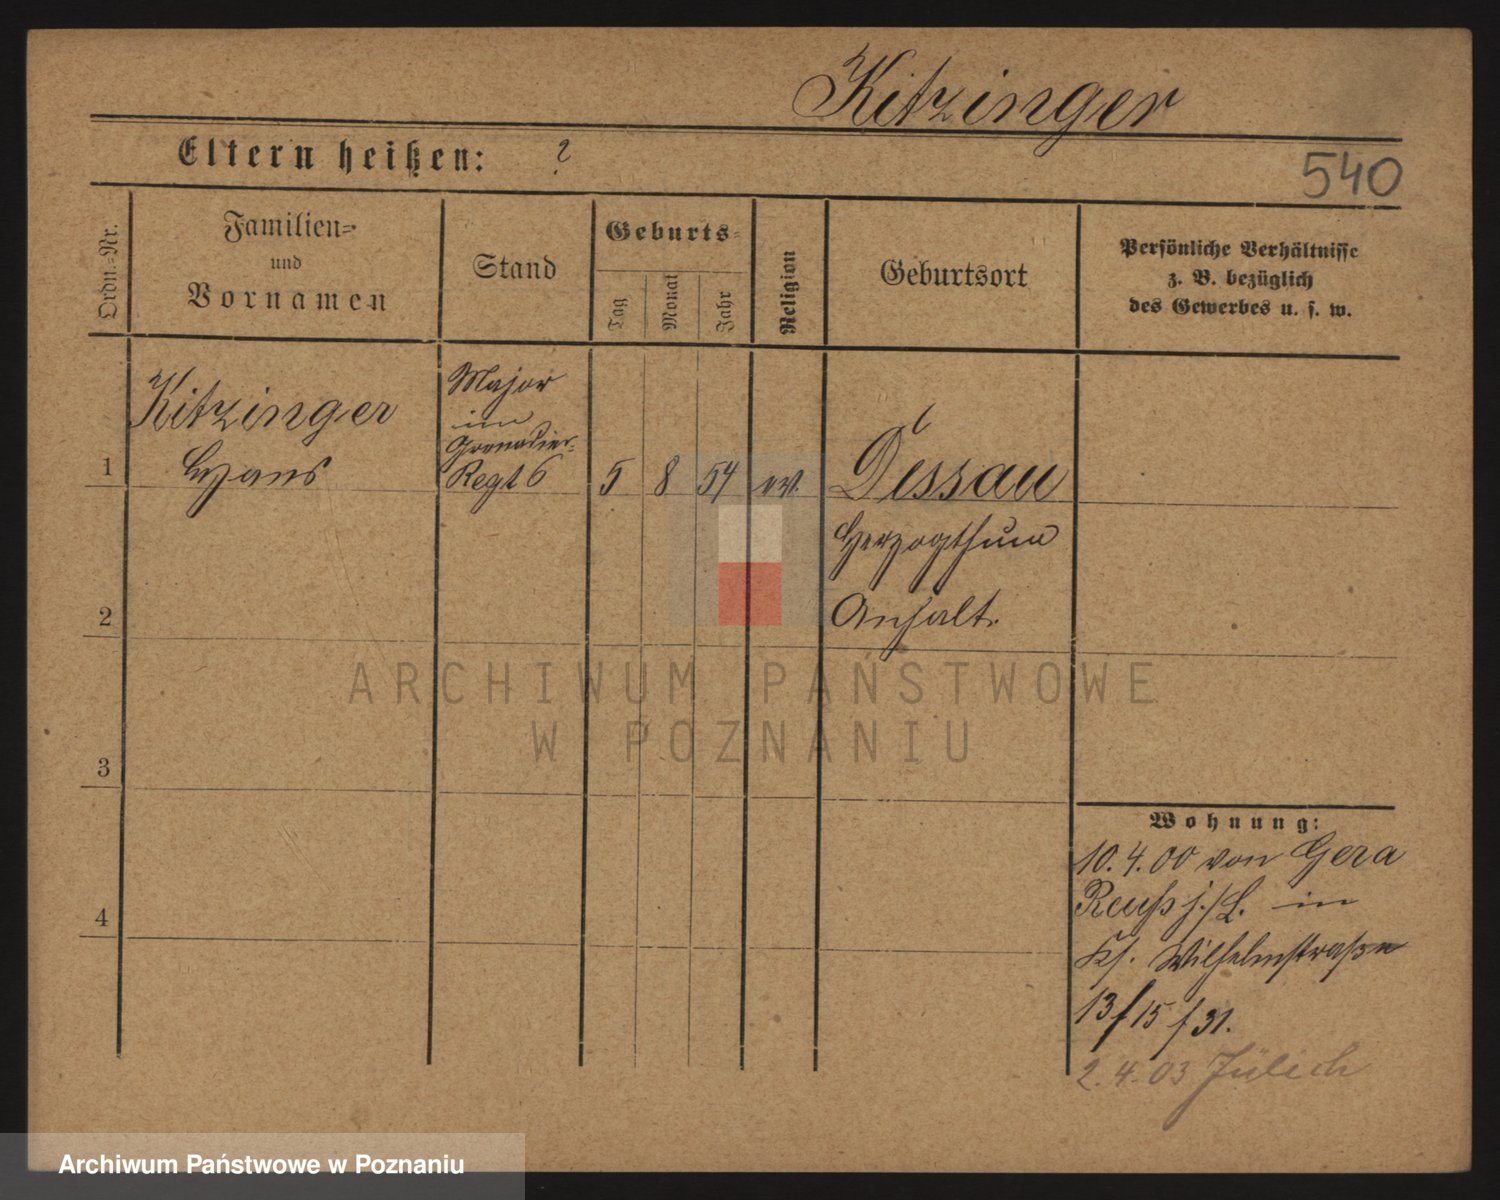 Kitzinger
Eltern heißen: ?
540
Ordn.-Nr.
Familien-
und
Vornamen
Stand
Geburts-
Tag
Monat
Jahr
Religion
Geburtsort
Persönliche Verhältnisse
z. B. bezüglich
des Gewerbes u. s. w.
1
Kitzinger
Hans
Major
im
Grenadier-
Regt 6
5 8 54 ev.
Dessau
Herzogthum
Anhalt.
2
3
4
Wohnung:
10.4.00 von Gera
Reuß j./L. in
Wilhelmstraße
13/15/31.
2.4.03 Jülich
ARCHIWUM PAŃSTWOWE
W POZNANIU
Archiwum Państwowe w Poznaniu